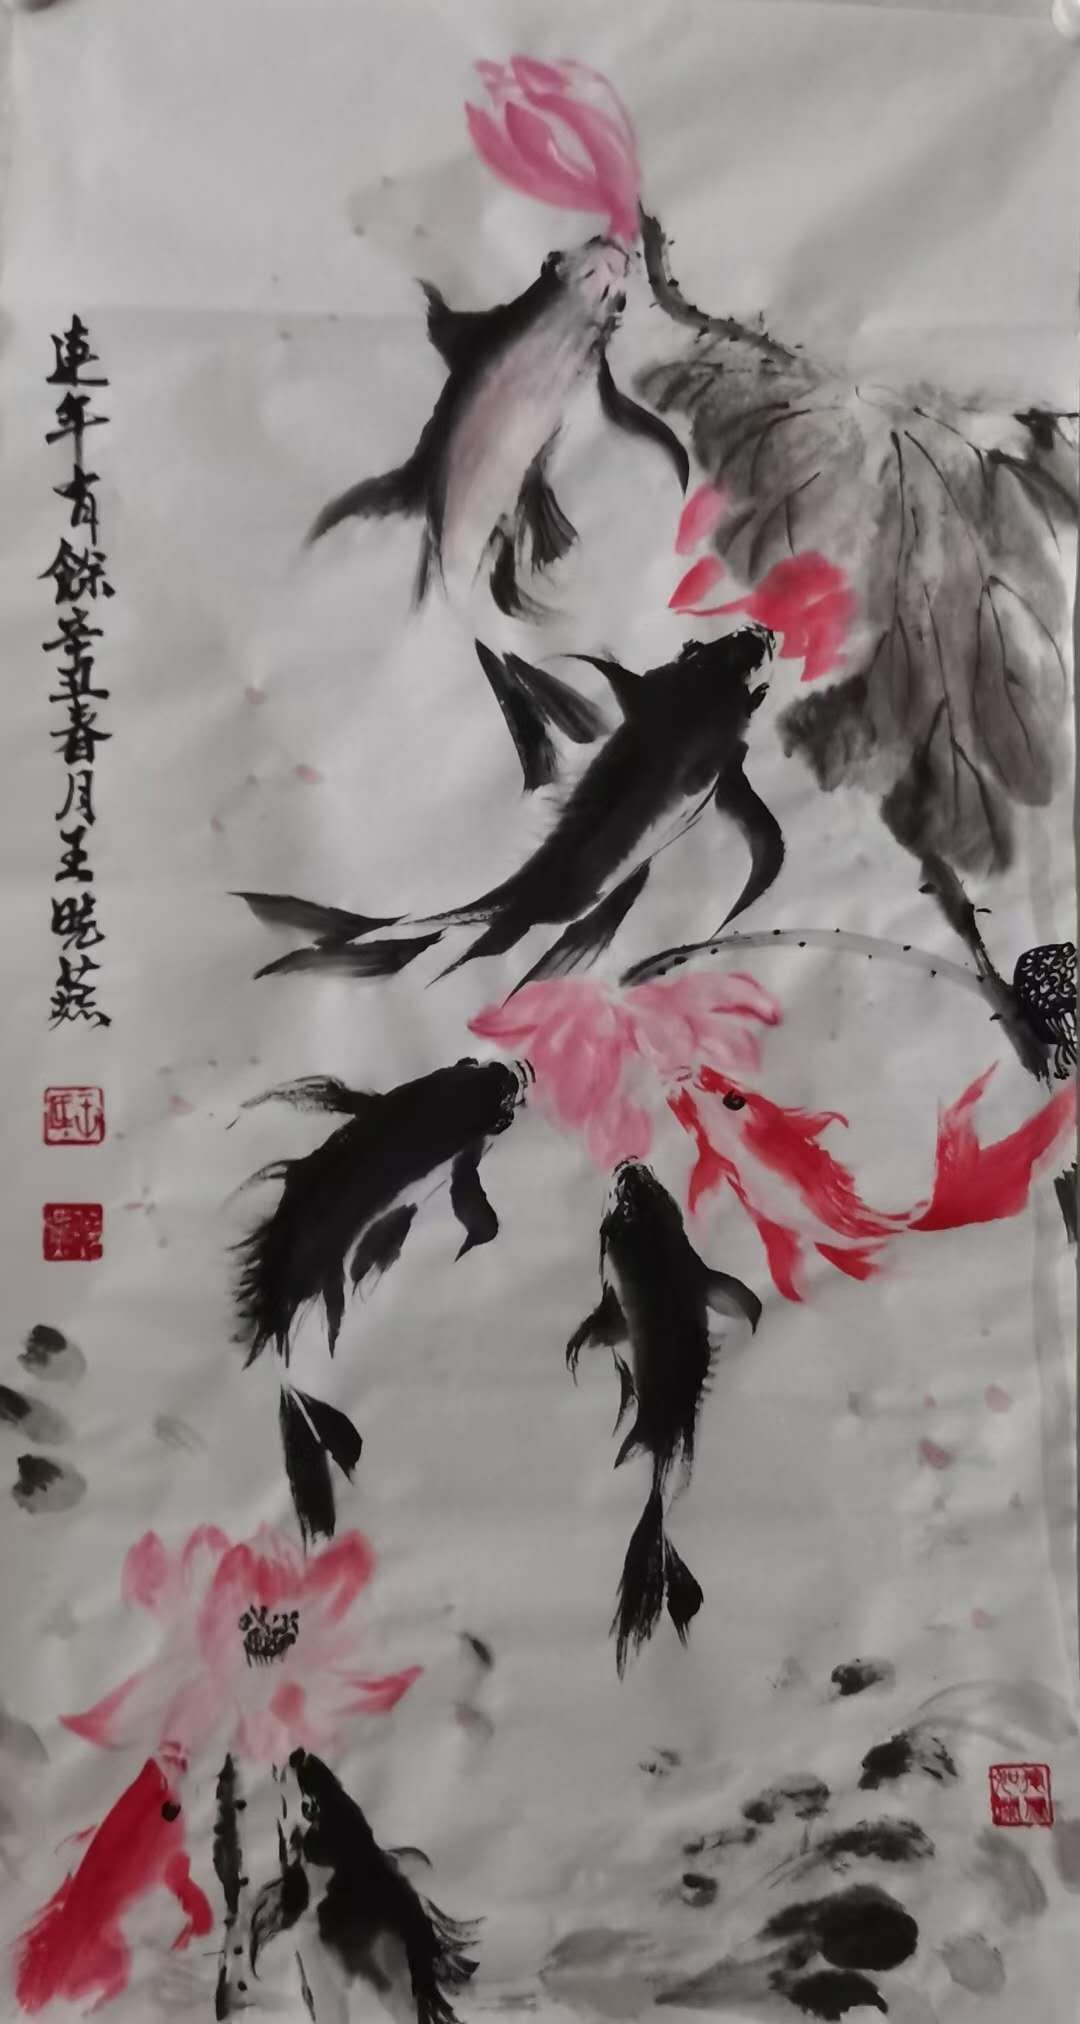 連年有餘辛丑春月王晓燕